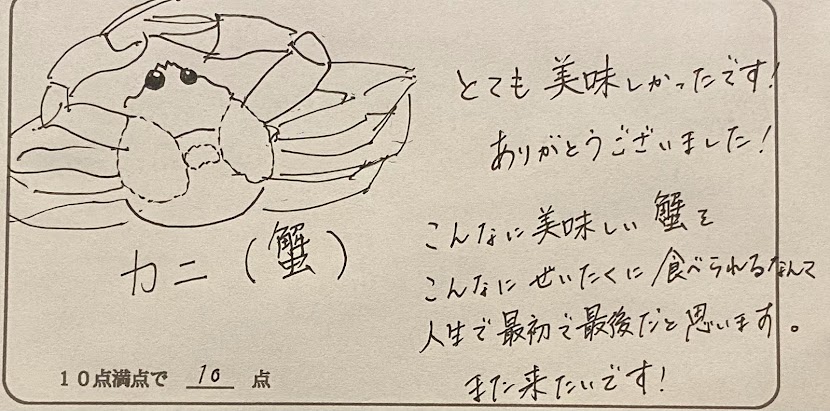 とても美味しかったです!
ありがとうございました!
こんなに美味しい蟹を
こんなにぜいたくに食べられるなんて
人生で最初で最後だと思います。
また来たいです!
カニ(蟹)
10点満点で 10 点